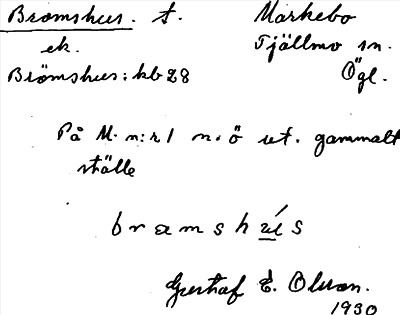 Bromshus. t. Markebo
ek. Tjällmo sn.
Brömshus: kb 28 Ögl.
På M. n:r 1 n. ö ut. gammalt
ställe
bramshú̲s
Gustaf E. Olsson.
1930